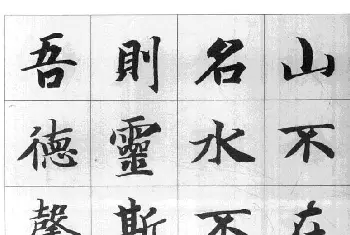 山不在
名水不
則靈斯
吾德馨